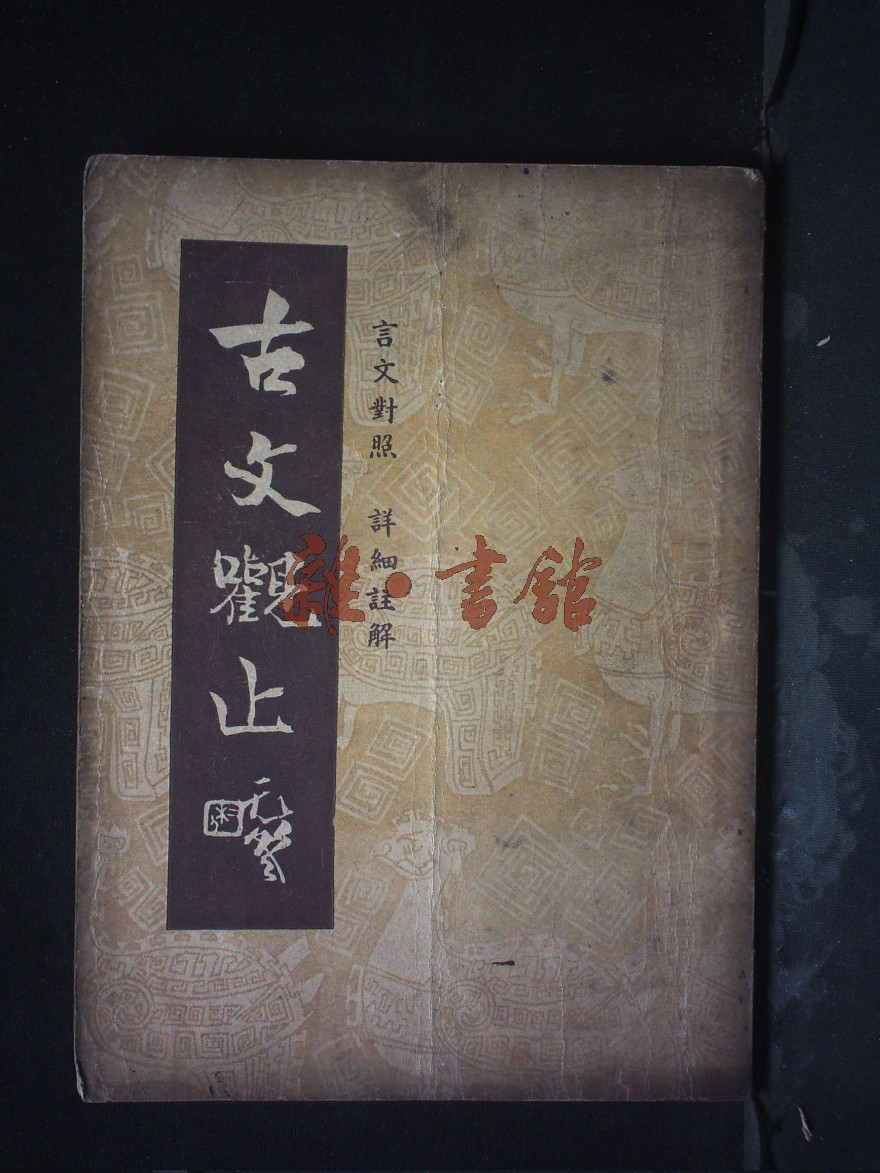 言文對照 詳細註解
古文觀止
雜·書館
一